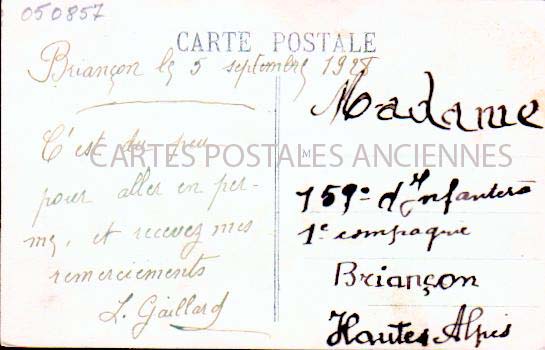 050857
CARTE POSTALE
Briançon le 5 septembre 1928
C'est du peu
pour aller en per-
me, et recevez mes
remerciements
L. Gaillard
CARTES POSTALES ANCIENNES
Madame
M
159e d'Infanterie
1e compagnie
Briançon
Hautes Alpes